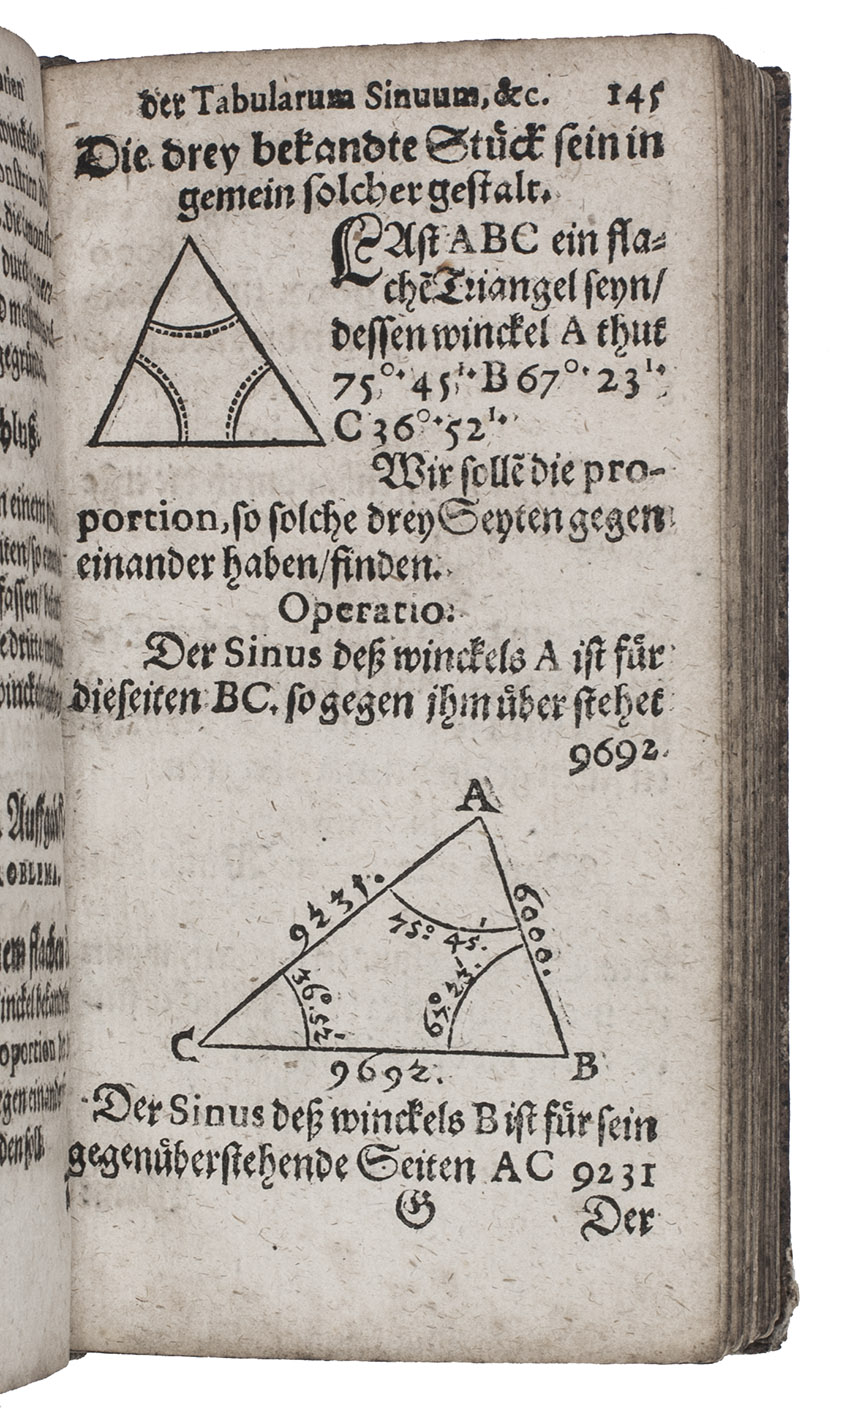 der Tabularum Sinuum, &c. 145
Die drey bekandte Stück sein in
gemein solcher gestalt.
LAst ABC ein fla-
chẽ Triangel seyn/
dessen winckel A thut
75°. 45'. B 67°. 23'.
C 36°. 52'.
Wir sollẽ die pro-
portion, so solche drey Seyten gegen
einander haben/finden.
Operatio:
Der Sinus deß winckels A ist für
die seiten BC. so gegen jhm über stehet
9692.
A
9231.
6000.
75° 45'.
36°. 52'
67°. 23'.
C
B
9692.
Der Sinus deß winckels B ist für sein
gegenüberstehende Seiten AC 9231
G
Der